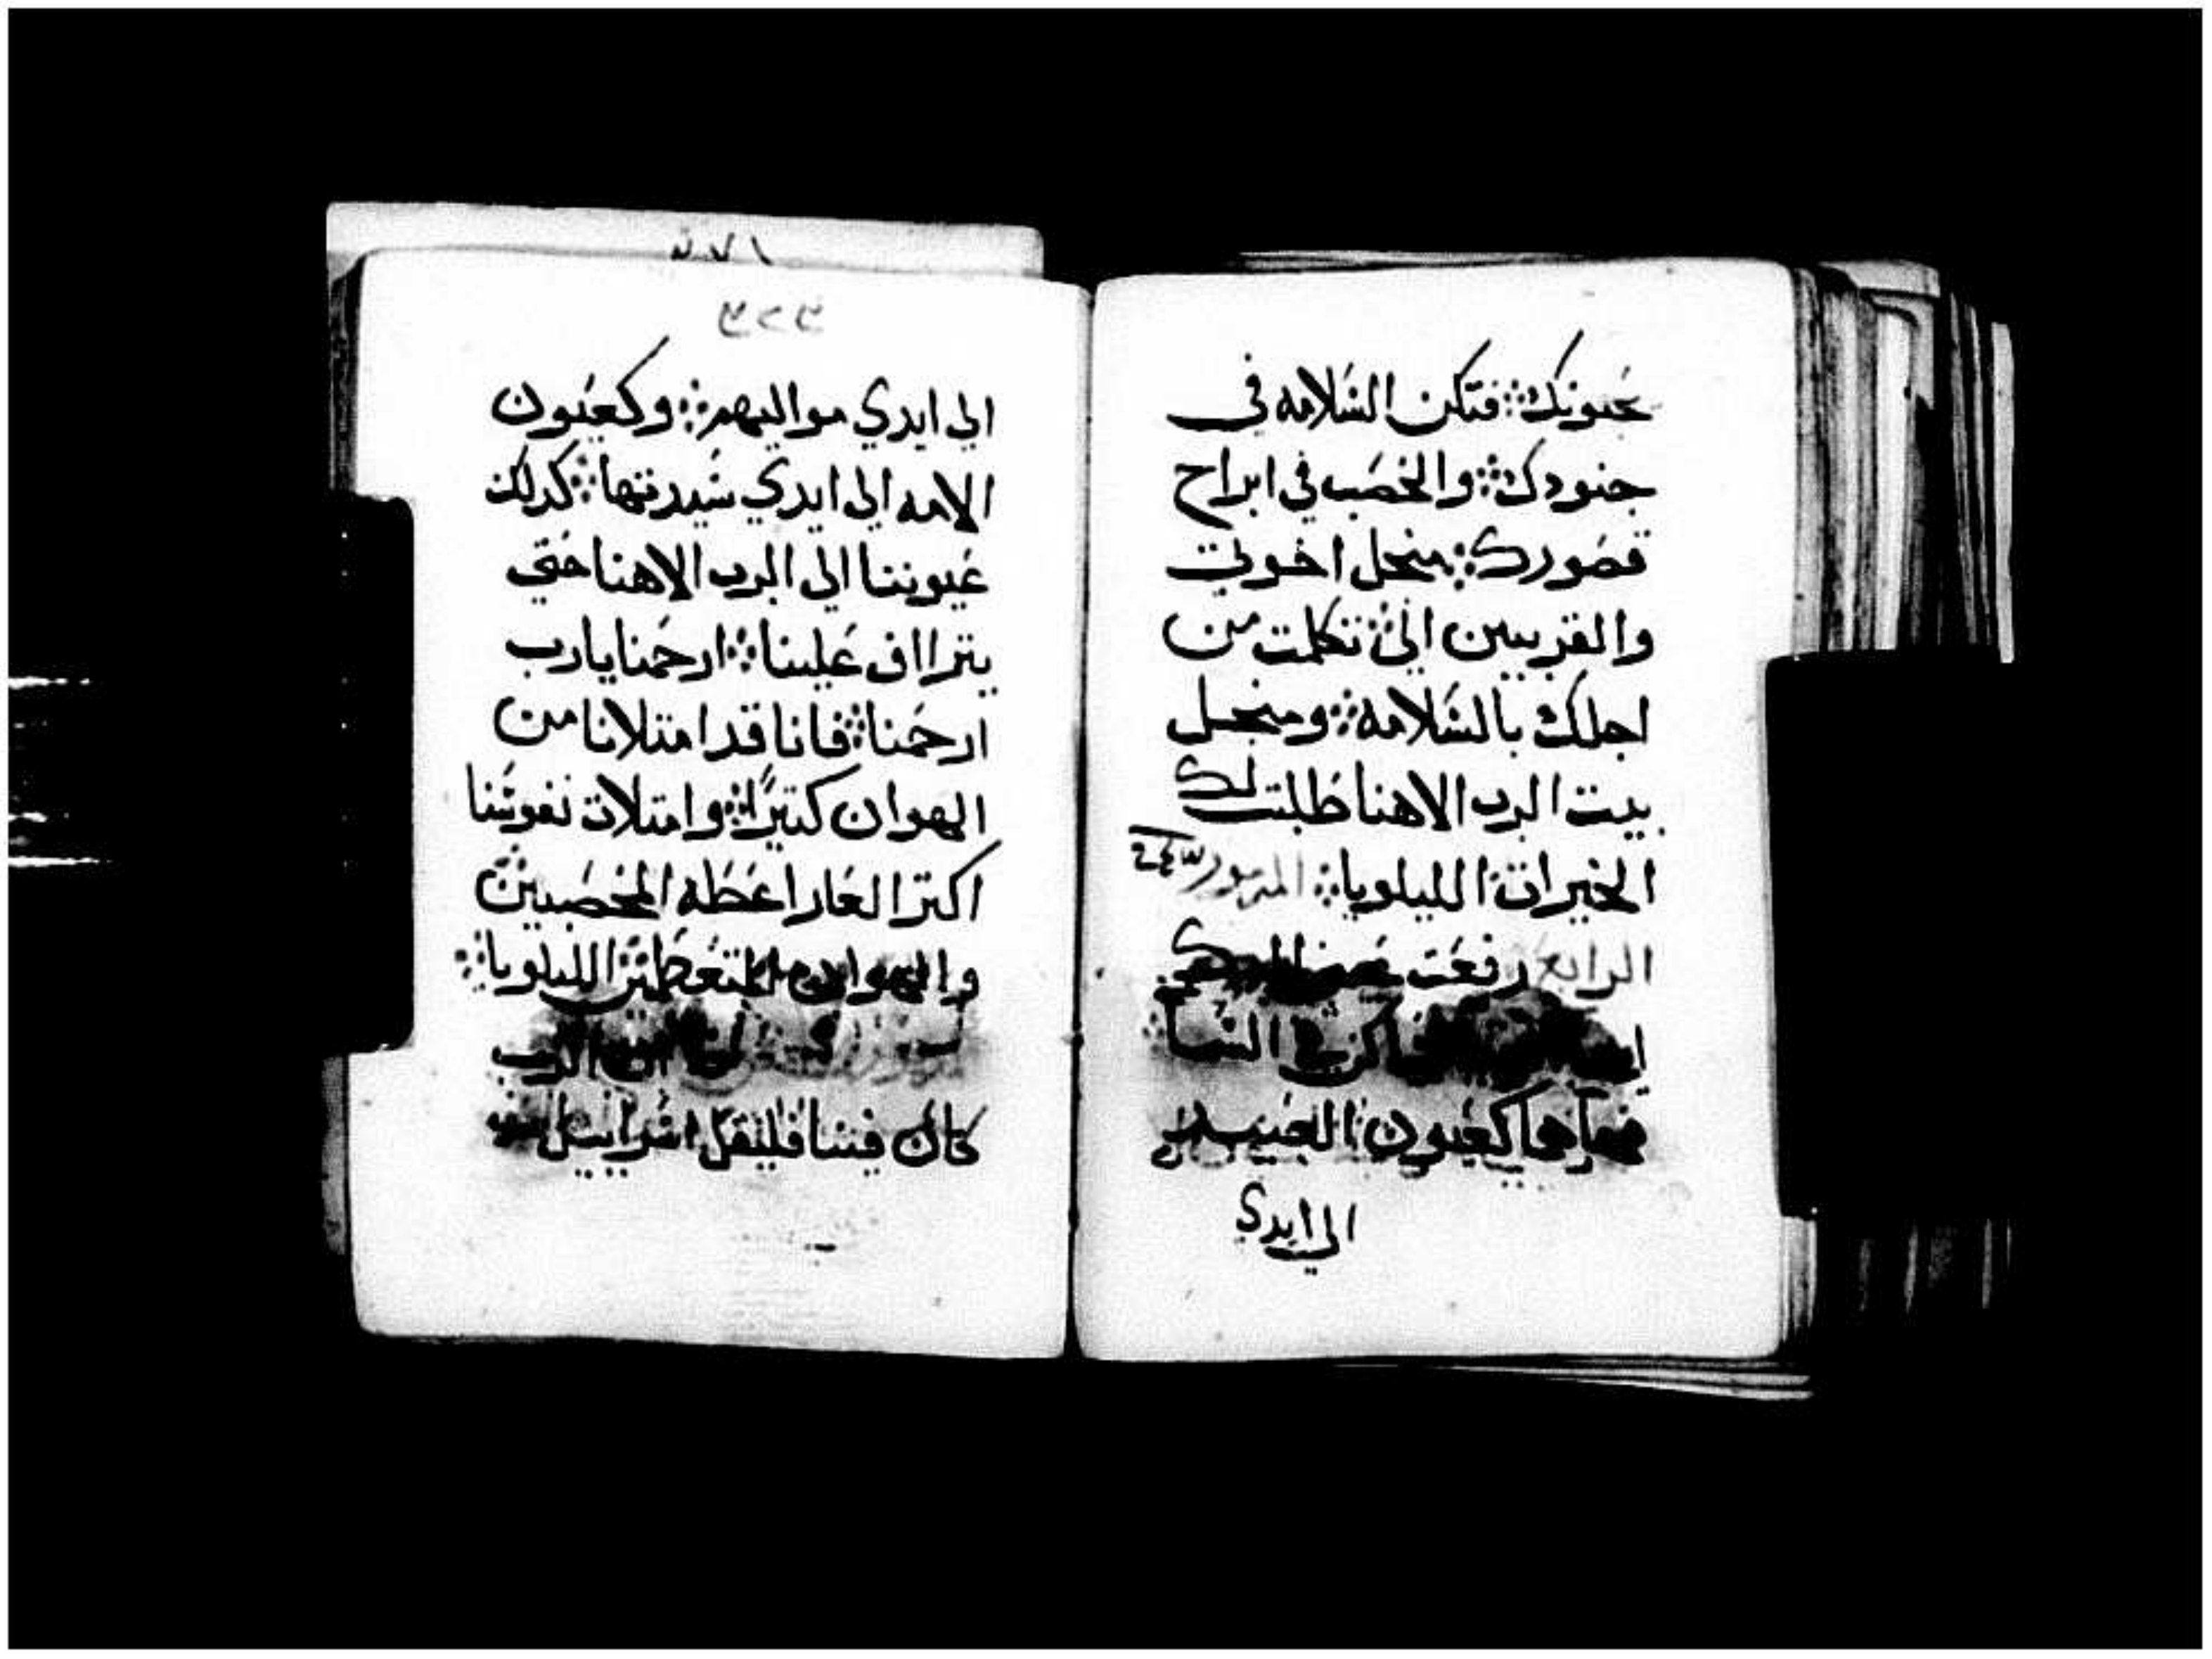 عيونك፥ فتكن السلامه في
جنودك፥ والخصب في ابراح
قصورك፥ منجل اخوتي
والقربيين الي፥ تكلمت من
اجلك بالسلامه፥ ومنجل
بيت الرب الاهنا طلبت لك
الخيرات፥ الليلويا፥ المزمور
الرابع رفعت
السما
كعيون العبيد
الي ايدي
٣٢٣
الي ايدي مواليهم፥ وكعيون
الامه الي ايدي سيدتها፥ كدلك
عيوننا الي الرب الاهنا حتي
يترااف علينا፥ ارحمنا يارب
ارحمنا፥ فاننا قد امتلانا من
الهوان كتيرًا፥ وامتلات نفوسنا
اكتر العار اعطه المخصبين
والهوان للمتعظمين፥ الليلويا፥
الرب
كان فينا فليقل اسراييل